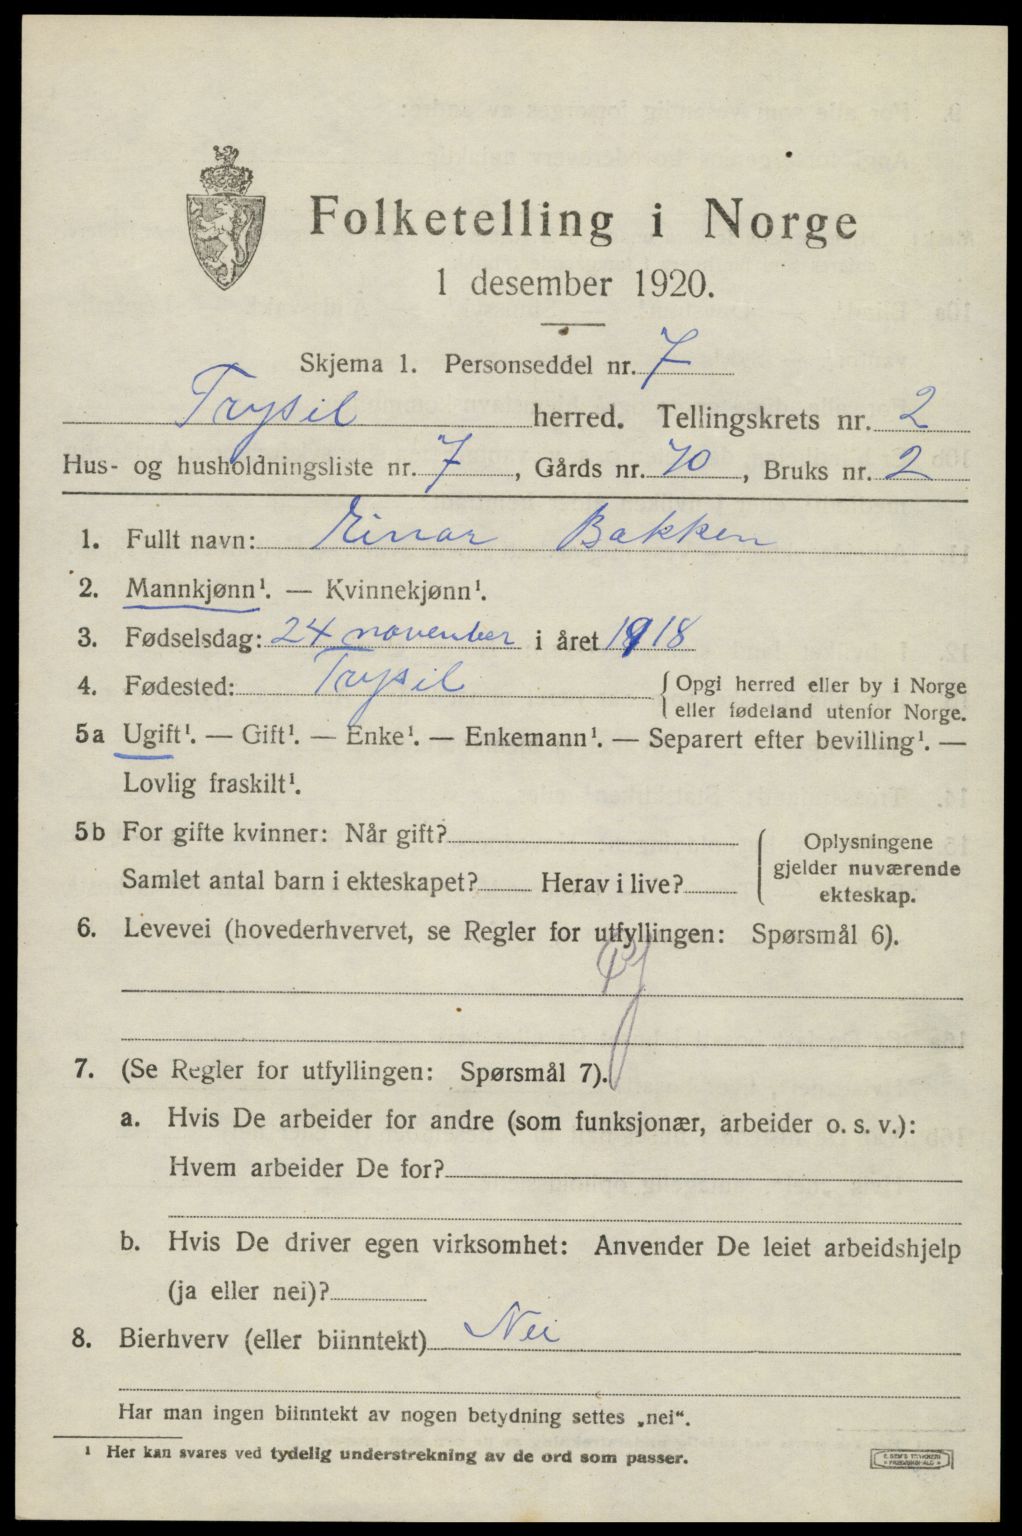 Folketelling i Norge
1 desember 1920.
Skjema 1. Personseddel nr. 7
Trysil herred. Tellingskrets nr. 2
Hus- og husholdningsliste nr. 7, Gårds nr. 70, Bruks nr. 2
1. Fullt navn: Einar Bakken
2. Mannkjønn¹. — Kvinnekjønn¹.
3. Fødselsdag: 24 november i året 1918
4. Fødested: Trysil { Opgi herred eller by i Norge
eller fødeland utenfor Norge.
5a Ugift¹. — Gift¹. — Enke¹. — Enkemann¹. — Separert efter bevilling¹. —
Lovlig fraskilt¹.
5b For gifte kvinner: Når gift?
Samlet antal barn i ekteskapet? Herav i live?
Oplysningene
gjelder nuværende
ekteskap.
6. Levevei (hovederhvervet, se Regler for utfyllingen: Spørsmål 6).
7. (Se Regler for utfyllingen: Spørsmål 7).
a. Hvis De arbeider for andre (som funksjonær, arbeider o. s. v.):
Hvem arbeider De for?
b. Hvis De driver egen virksomhet: Anvender De leiet arbeidshjelp
(ja eller nei)?
8. Bierhverv (eller biinntekt) Nei
Har man ingen biinntekt av nogen betydning settes „nei“.
¹ Her kan svares ved tydelig understrekning av de ord som passer.